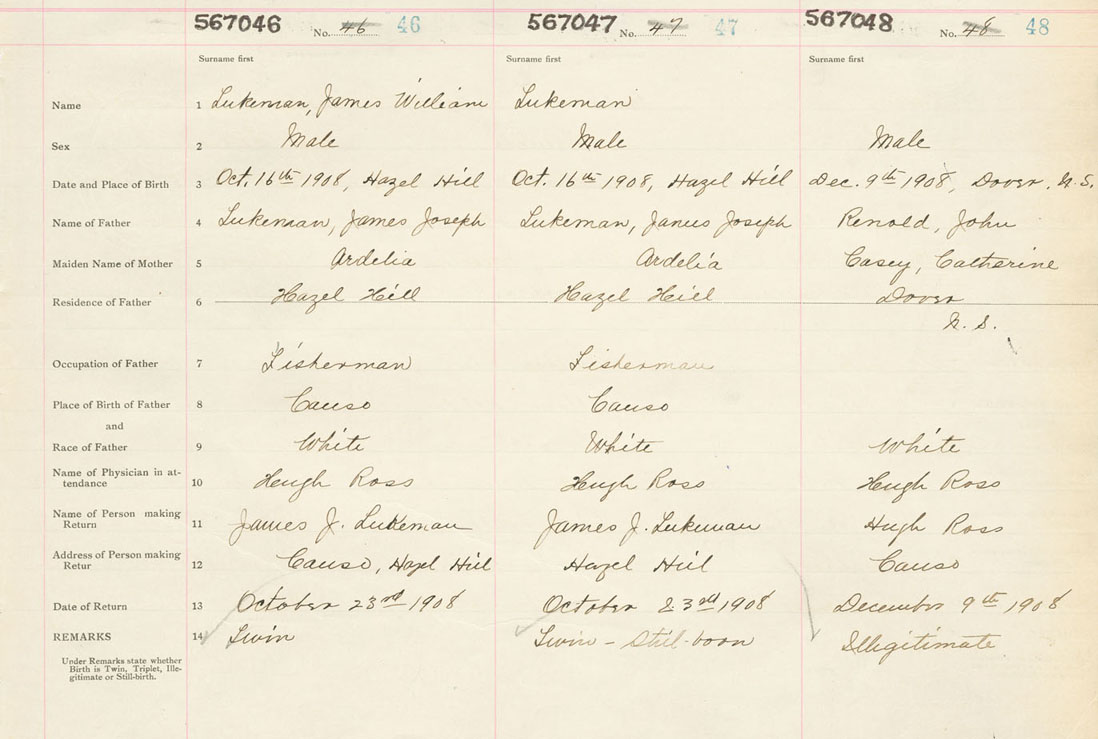 567046 No. 46 46 567047 No. 47 47 567048 No. 48 48
Surname first Surname first Surname first
Name 1 Lukeman, James William Lukeman
Sex 2 Male Male Male
Date and Place of Birth 3 Oct. 16th 1908, Hazel Hill Oct. 16th 1908, Hazel Hill Dec. 9th 1908, Dover, N.S.
Name of Father 4 Lukeman, James Joseph Lukeman, James Joseph Renold, John
Maiden Name of Mother 5 Ardelia Ardelia Casey, Catherine
Residence of Father 6 Hazel Hill Hazel Hill Dover
N. S.
Occupation of Father 7 Fisherman Fisherman
Place of Birth of Father 8 Canso Canso
and
Race of Father 9 White White White
Name of Physician in at-
tendance 10 Hugh Ross Hugh Ross Hugh Ross
Name of Person making
Return 11 James J. Lukeman James J. Lukeman Hugh Ross
Address of Person making
Retur 12 Canso, Hazel Hill Hazel Hill Canso
Date of Return 13 October 23rd 1908 October 23rd 1908 December 9th 1908
REMARKS 14 Twin Twin - Still-born Illegitimate
Under Remarks state whether
Birth is Twin, Triplet, Ille-
gitimate or Still-birth.